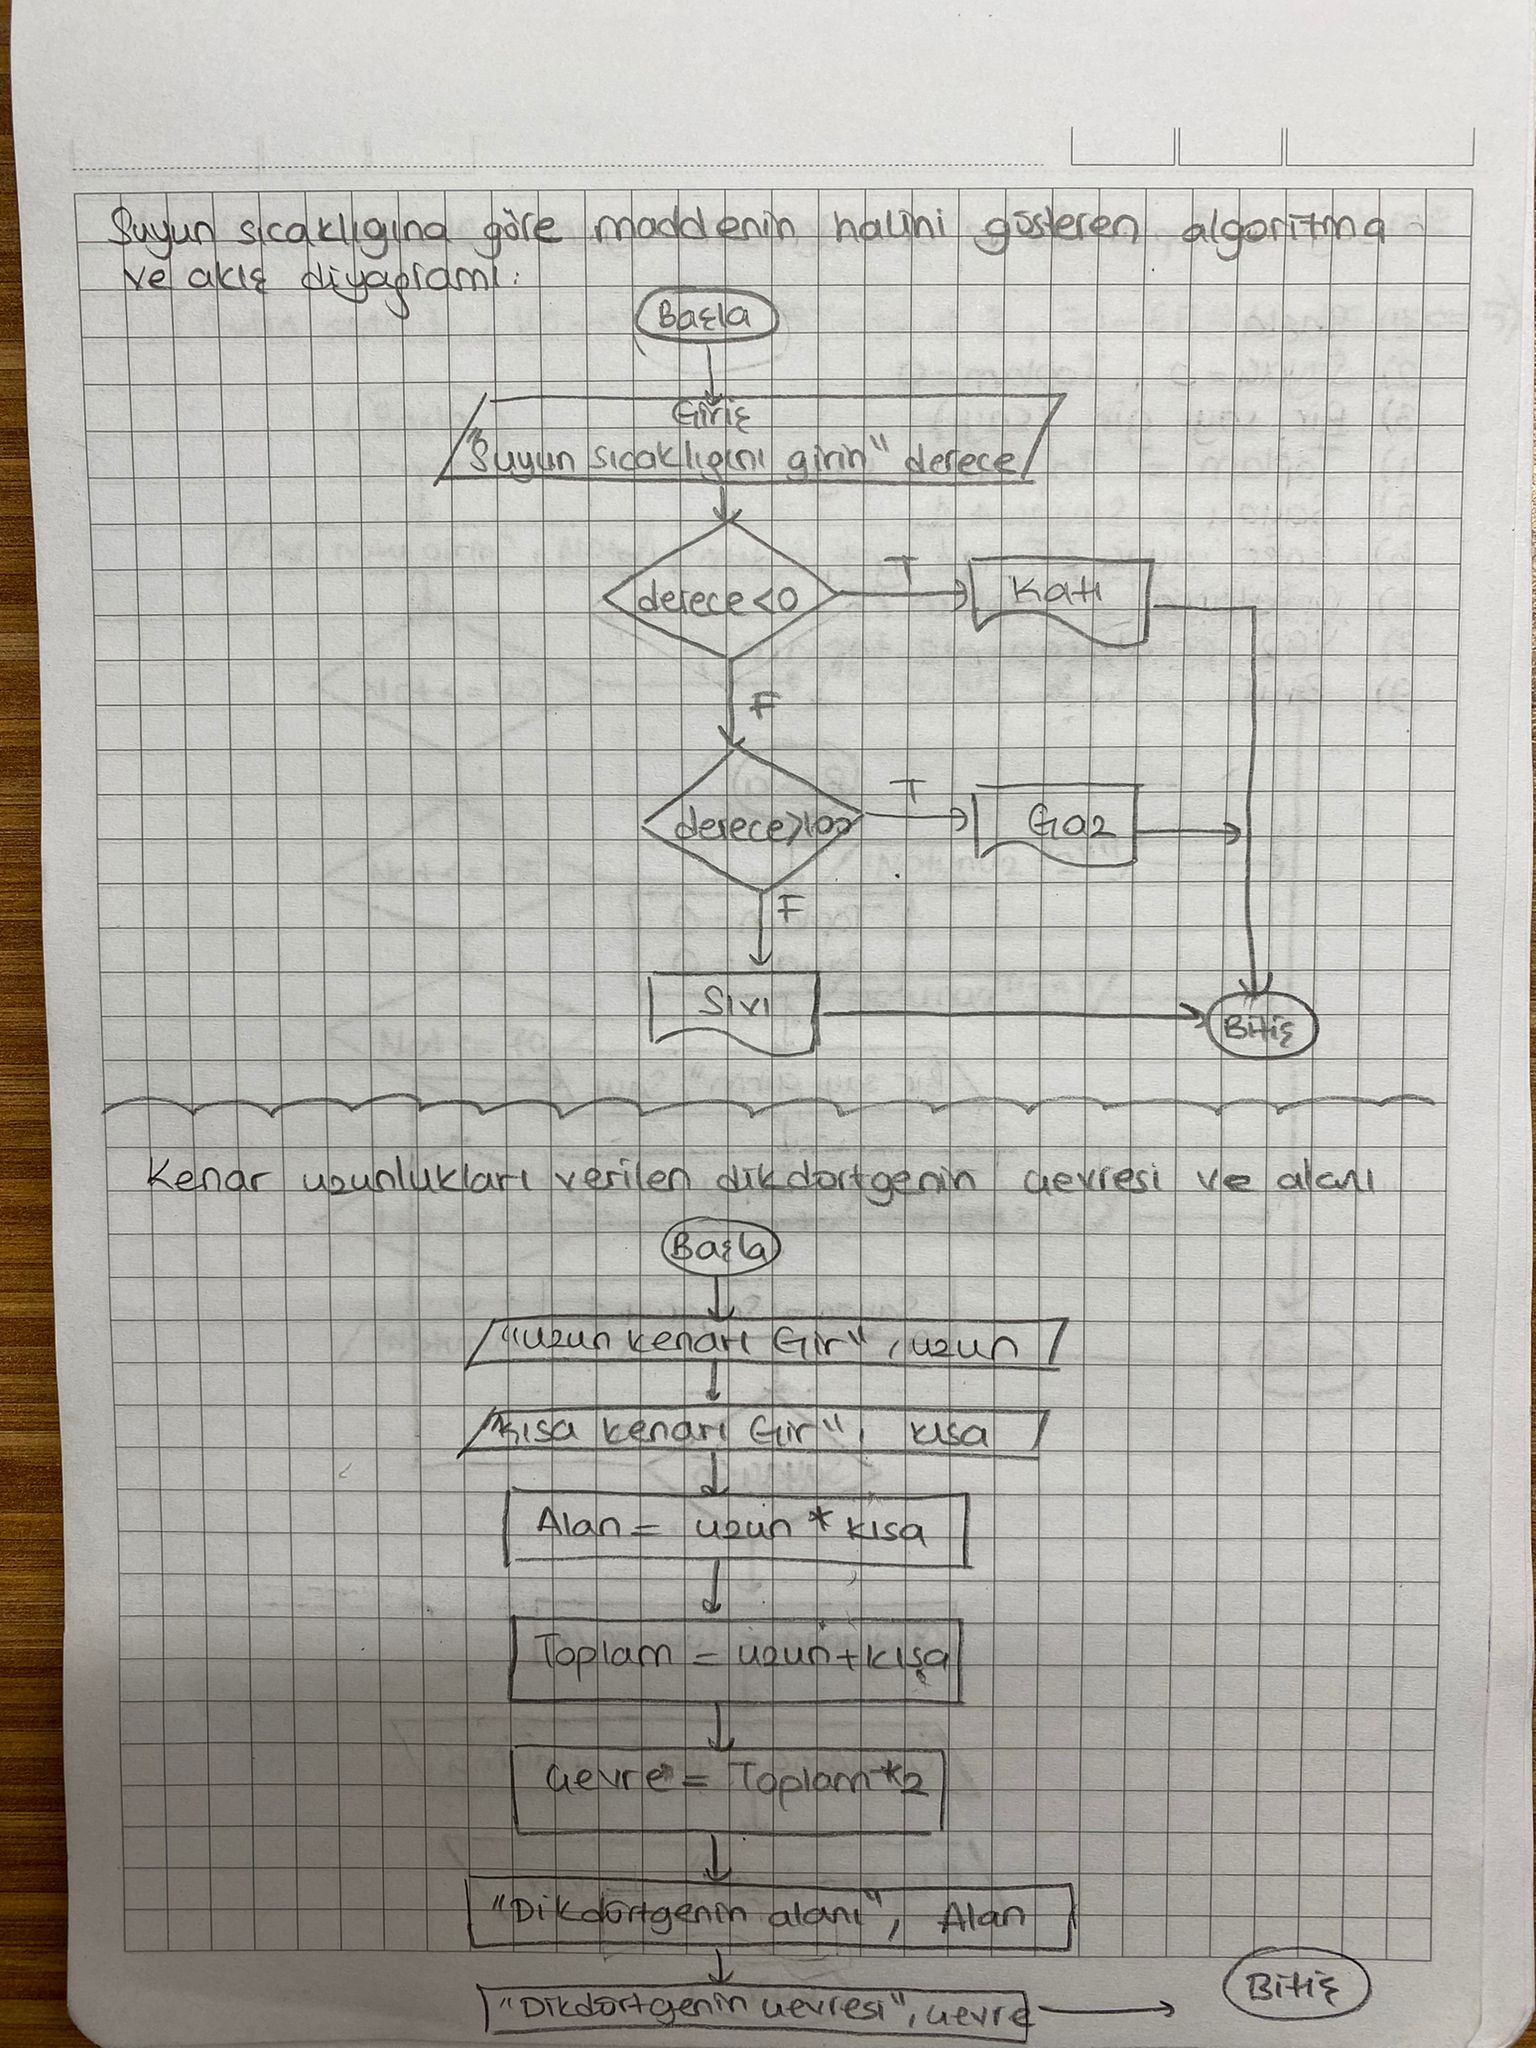 Suyun sıcaklıgına göre maddenin halini gösteren algoritma
ve akış diyagramı:
Başla
Giriş
"Suyun sıcaklıgını girin" derece
derece<0
T
Katı
F
derece>100
T
Gaz
F
Sıvı
Bitiş
Kenar uzunlukları verilen dikdörtgenin çevresi ve alanı
Başla
"uzun kenarı Gir", uzun
"Kısa kenarı Gir", kısa
Alan = uzun * kısa
Toplam = uzun+kısa
Çevre = Toplam*2
"Dikdörtgenin alanı", Alan
"Dikdörtgenin çevresi", çevre
Bitiş